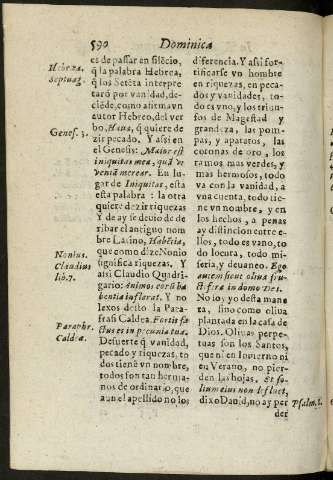 590 Dominica
Hebræa.
septuag.
Genes. 3.
Nonius.
Claudius
lib. 7.
Paraphr.
Caldæa.
es de passar en silẽcio,
q̃ la palabra Hebrea,
q̃ los Setẽta interpre
taró por vanidad, de-
clẽde, como afirma vn
autor Hebreo, del ver
bo, Haua, q̃ quiere de
zir pecado. Y assi en
el Genesis: Maior est
iniquitas mea, quã vt
veniã merear. En lu-
gar de Iniquitas, esta
esta palabra: la otra
quiere dezir riquezas
Y de ay se deuio de de
ribar el antiguo nom
bre Latino, Habẽtia,
que como dize Nonio
significa riquezas. Y
assi Claudio Quadri-
gario: Animos eorũ ha
bentia inflarat. Y no
lexos desto la Para-
frasi Caldea. Fortis fa
ctus es in pecunia tua.
De suerte q̃ vanidad,
pecado y riquezas, to
dos tienẽ vn nombre,
todos son tan herma-
nos de ordinario, que
aun el apellido no los
diferencia. Y assi for-
tificarse vn hombre
en riquezas, en peca-
dos y vanidades, to-
do es vno, y los triun-
fos de Magestad y
grandeza, las pom-
pas, y aparatos, las
coronas de oro, los
ramos mas verdes, y
mas hermosos, todo
va con la vanidad, a
vna cuenta, todo tie-
ne vn nombre, y en
los hechos, a penas
ay distincion entre e-
llos, todo es vano, to
do locura, todo mi-
seria, y deuaneo. Ego
autem sicut oliua fru-
ctifera in domo Dei.
No io, yo desta mane
ra, sino como oliua
plantada en la casa de
Dios. Oliuas perpe-
tuas son los Santos,
que ni en Inuierno ni
en Verano, no pier-
den las hojas. Et fo-
lium eius non defluet,
dixo Dauid, no ay per
der
Psalm. 1.